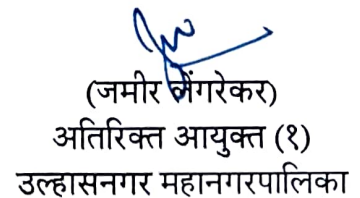 (जमीर लेंगरेकर)
अतिरिक्त आयुक्त (१)
उल्हासनगर महानगरपालिका